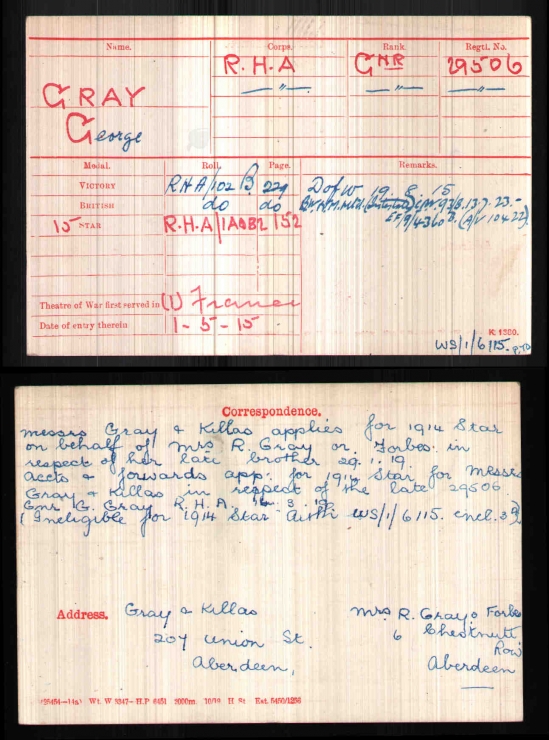 Name. Corps. Rank. Regtl. No.
GRAY R.H.A GNR 29506
George —"— —"— —"—
Medal. Roll. Page. Remarks.
VICTORY RHA/102 B 229 D of W 19. 8. 15
BRITISH do do
15 STAR R.H.A/1A&B2 152 EF/9/4360 B. (A/V 10422).
Theatre of War first served in (1) France
Date of entry therein 1-5-15
K 1380.
WS/1/6115. PTO
Correspondence.
Messrs Gray & Killas applies for 1914 Star
on behalf of Mrs R. Gray or Forbes in
respect of her late brother 29.1.19.
accts & forwards app. for 1914 Star for Messrs
Gray & Killas in respect of the late 29506
Gnr G. Gray R.H.A 3.
(Ineligible for 1914 Star WS/1/6115. encl. 39)
Address. Gray & Killas Mrs R. Gray o Forbes
207 Union St. 6 Chestnutt
Row
Aberdeen, Aberdeen
Wt. W 5347— H.P 6451 2000m 10/19 H St Est. 5450/1256